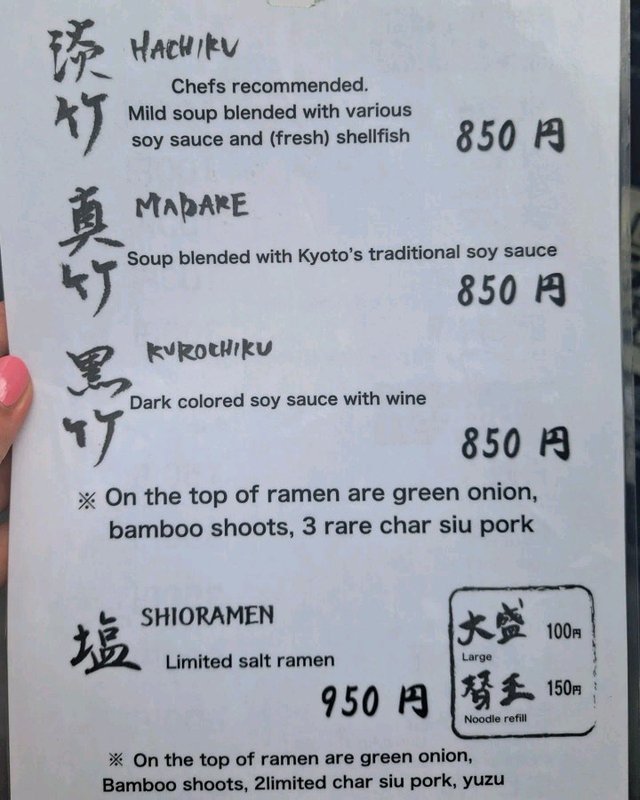 淡竹 HACHIKU
Chefs recommended.
Mild soup blended with various
soy sauce and (fresh) shellfish
850 円
真竹 MADAKE
Soup blended with Kyoto's traditional soy sauce
850 円
黒竹 KUROCHIKU
Dark colored soy sauce with wine
850 円
※ On the top of ramen are green onion,
bamboo shoots, 3 rare char siu pork
塩 SHIORAMEN
Limited salt ramen
950 円
大盛 100円
Large
替玉 150円
Noodle refill
※ On the top of ramen are green onion,
Bamboo shoots, 2limited char siu pork, yuzu